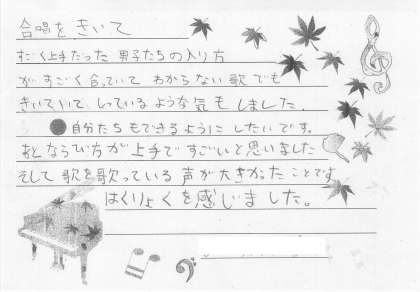 合唱をきいて
すごく上手だった 男子たちの入り方
がすごく合っていて わからない歌でも
きいていて、しっているような気もしました。
●自分たちもできるようにしたいです。
あとならび方が上手ですごいと思いました
そして歌を歌っている声が大きかったことです
はくりょくを感じました。